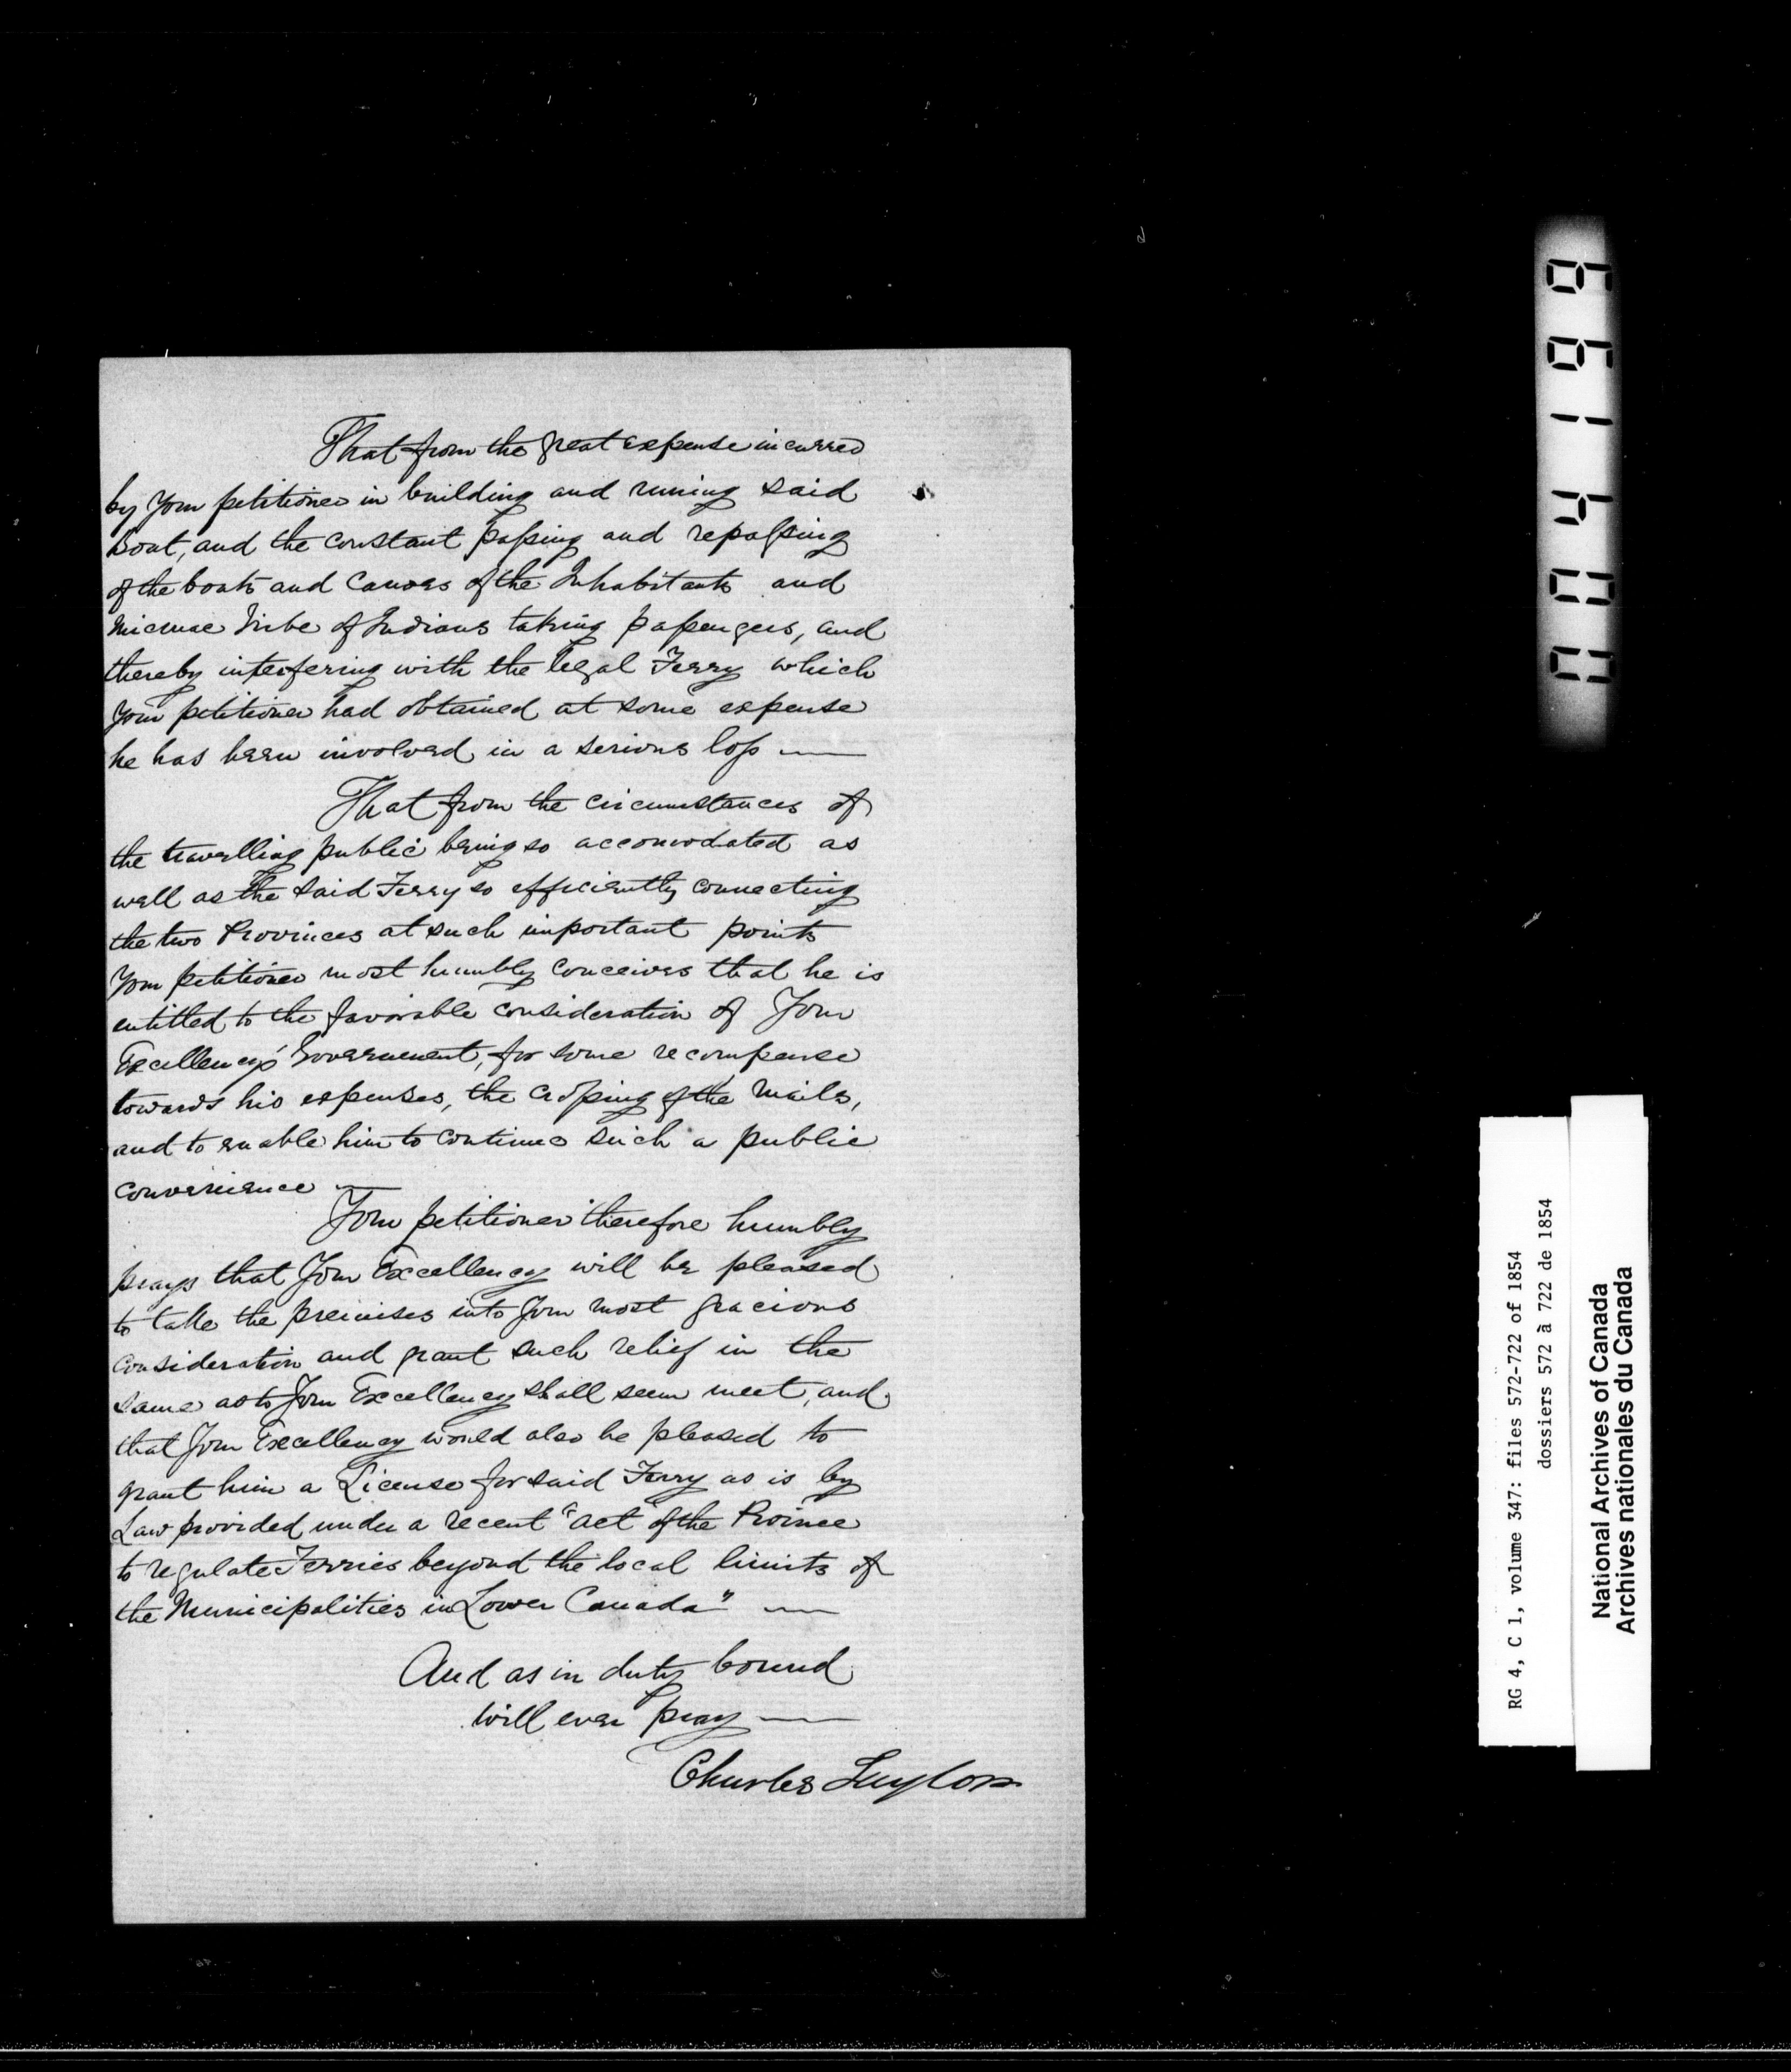 That from the great expense incurred
by Your petitioner in building and runing said
Boat, and the constant passing and repassing
of the boats and Canoes of the Inhabitants and
Micmac Tribe of Indians taking passengers, and
thereby interfering with the legal Ferry which
Your petitioner had obtained at some expense
he has been involved in a serious loss —
That from the circumstances of
the travelling public being so accomodated as
well as the said Ferry so efficiently connecting
the two Provinces at such important points
Your petitioner most humbly conceives that he is
entitled to the favorable consideration of Your
Excellency's Government, for some recompense
towards his expenses, the crossing of the Mails,
and to enable him to continue such a public
convenience —
Your petitioner therefore humbly
prays that Your Excellency will be pleased
to take the premises into Your most gracious
consideration and grant such relief in the
same as to Your Excellency shall seem meet, and
that Your Excellency would also be pleased to
grant him a License for said Ferry as is by
Law provided under a recent "act of the Province
to regulate Ferries beyond the local limits of
the Municipalities in Lower Canada" —
And as in duty bound
will ever pray —
Charles Taylor
RG 4, C 1, volume 347: files 572-722 of 1854
dossiers 572 à 722 de 1854
National Archives of Canada
Archives nationales du Canada